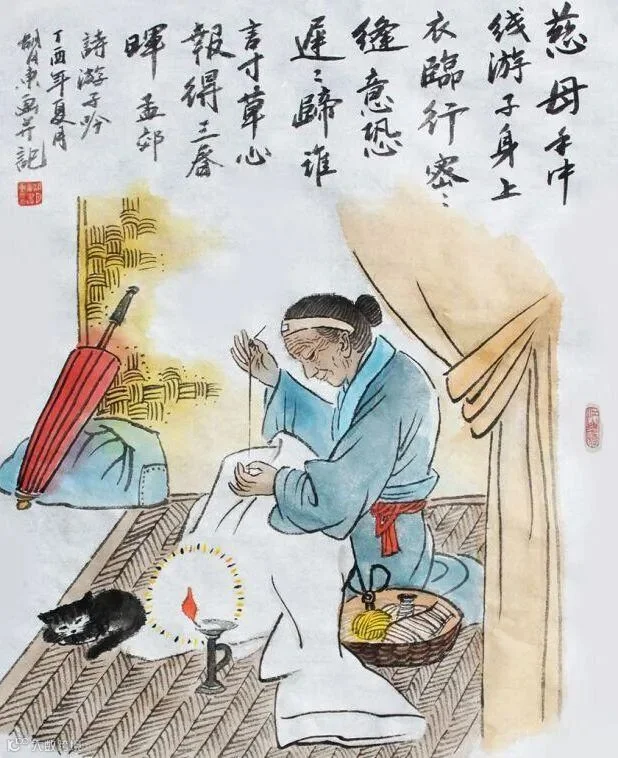 慈母手中
线游子身上
衣臨行密〻
縫意恐
遲〻歸谁
言寸草心
報得三春
暉 孟郊
詩游子吟
丁酉年夏月
東画并記